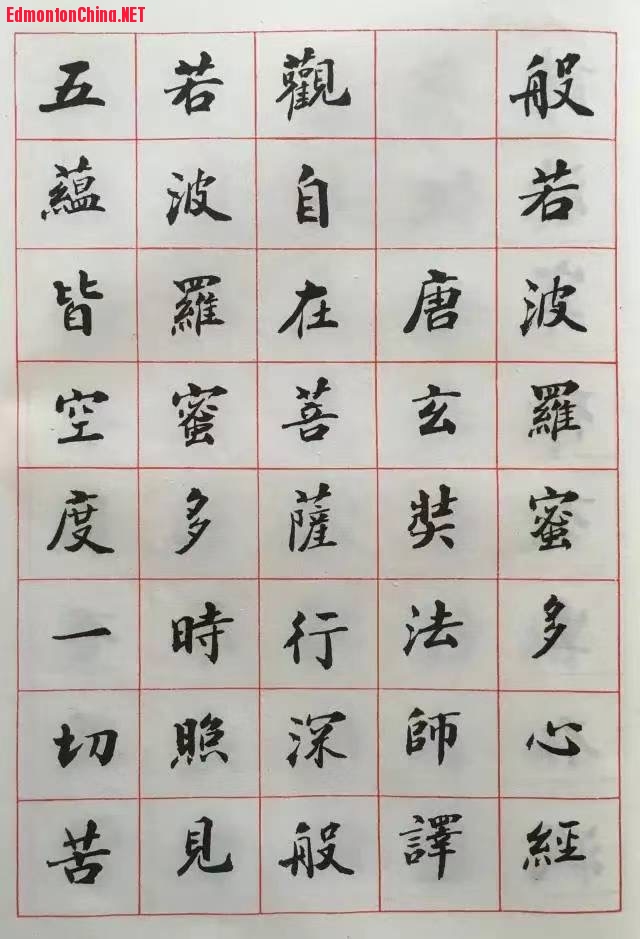 EdmontonChina.NET
般若波羅蜜多心經
唐玄奘法師譯
觀自在菩薩行深般
若波羅蜜多時照見
五蘊皆空度一切苦